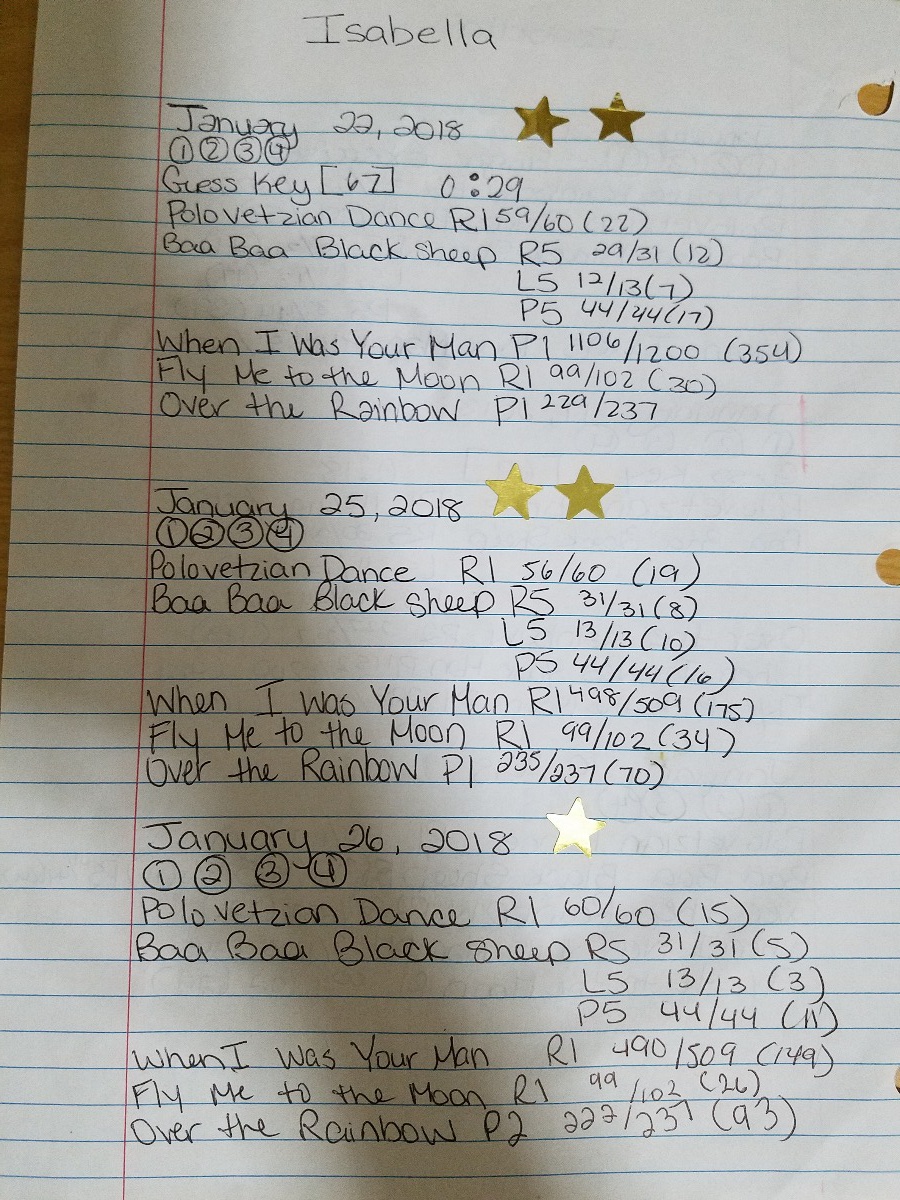 Isabella
January 22, 2018
① ② ③ ④
Guess Key [67] 0:29
Polovetzian Dance R1 59/60 (22)
Baa Baa Black Sheep R5 29/31 (12)
L5 12/13 (7)
P5 44/44 (17)
When I Was Your Man P1 1106/1200 (354)
Fly Me to the Moon R1 99/102 (30)
Over the Rainbow P1 229/237
January 25, 2018
① ② ③ ④
Polovetzian Dance R1 56/60 (19)
Baa Baa Black Sheep R5 31/31 (8)
L5 13/13 (10)
P5 44/44 (16)
When I Was Your Man R1 498/509 (175)
Fly Me to the Moon R1 99/102 (34)
Over the Rainbow P1 235/237 (70)
January 26, 2018
① ② ③ ④
Polovetzian Dance R1 60/60 (15)
Baa Baa Black Sheep R5 31/31 (5)
L5 13/13 (3)
P5 44/44 (11)
When I Was Your Man R1 490/509 (149)
Fly Me to the Moon R1 99/102 (26)
Over the Rainbow P2 222/237 (93)